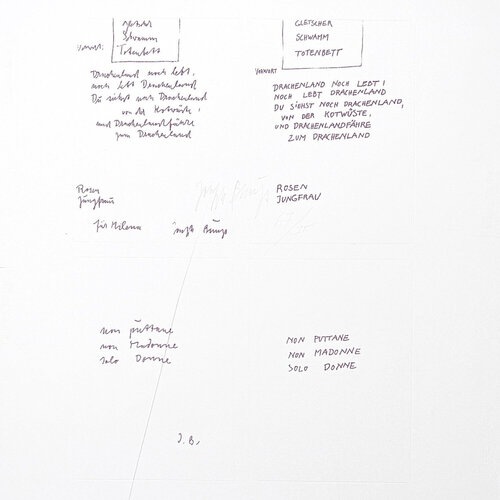 Gletscher
Schwamm
Totenbett
Vorwort:
Drachenland noch lebt,
noch lebt Drachenland
Du siehst noch Drachenland
von der Kotwüste,
und Drachenlandfähre
zum Drachenland
Rosen
Jungfrau
für Helena
GLETSCHER
SCHWAMM
TOTENBETT
VORWORT
DRACHENLAND NOCH LEBT!
NOCH LEBT DRACHENLAND
DU SIEHST NOCH DRACHENLAND,
VON DER KOTWÜSTE,
UND DRACHENLANDFÄHRE
ZUM DRACHENLAND
ROSEN
JUNGFRAU
non puttane
non Madonne
solo Donne
NON PUTTANE
NON MADONNE
SOLO DONNE
J.B.